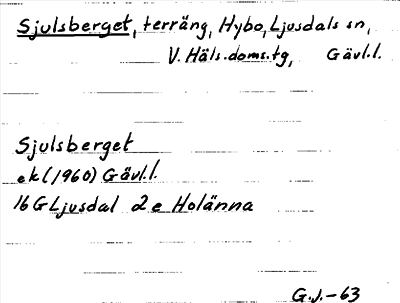 Sjulsberget, terräng, Hybo, Ljusdals sn,
V. Häls. doms.tg, Gävl.l.
Sjulsberget
ek (1960) Gävl.l.
16 G Ljusdal 2 e Holänna
G.J.-63